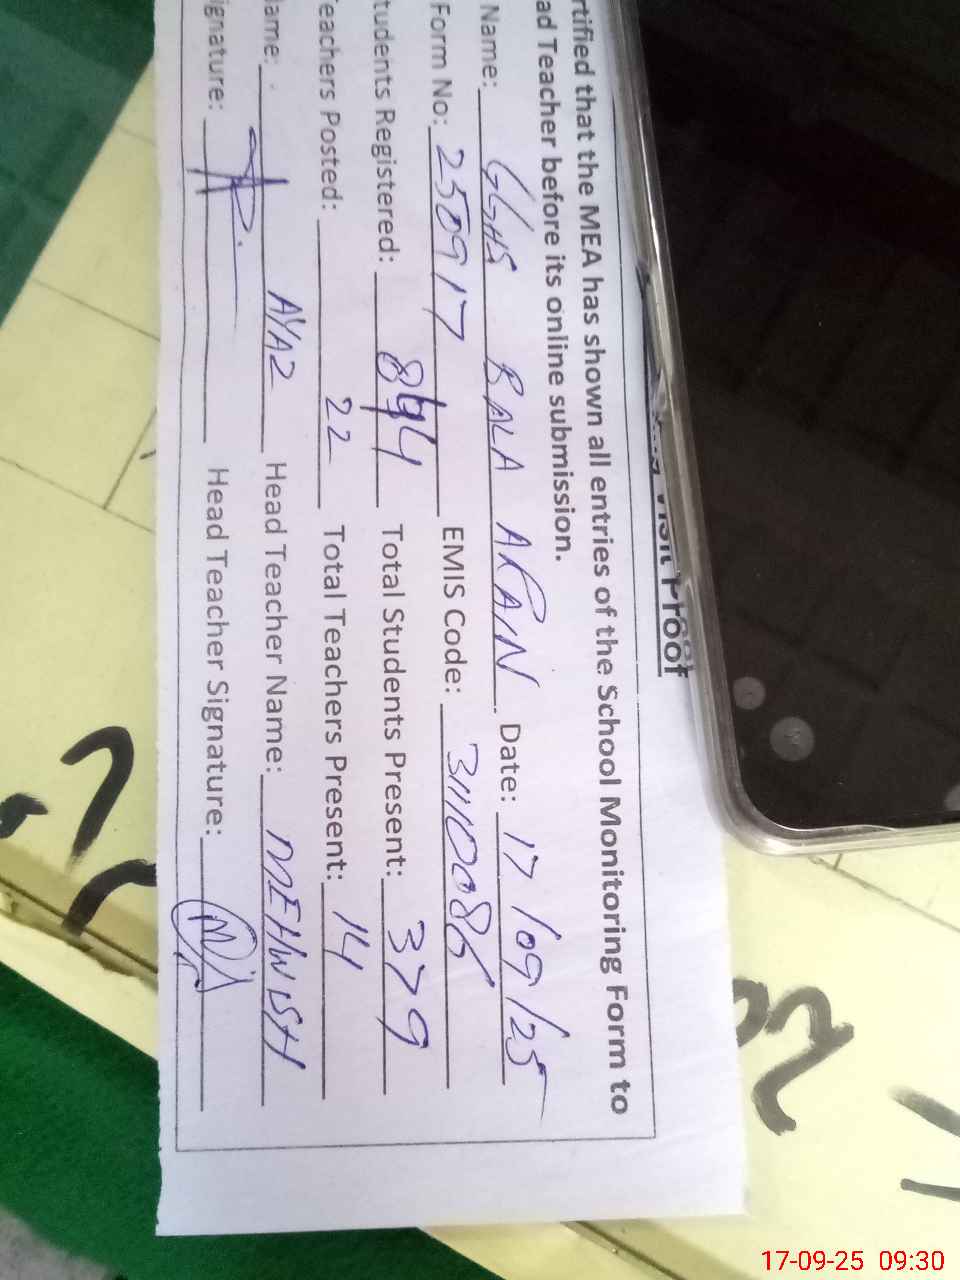 Visit Proof
rtified that the MEA has shown all entries of the School Monitoring Form to
ad Teacher before its online submission.
Name: GGHS BALA ARAIN Date: 17/09/25
Form No: 250917 EMIS Code: 31110086
tudents Registered: 894 Total Students Present: 379
eachers Posted: 22 Total Teachers Present: 14
ame: AYAZ Head Teacher Name: MEHWISH
ignature: Head Teacher Signature:
17-09-25 09:30